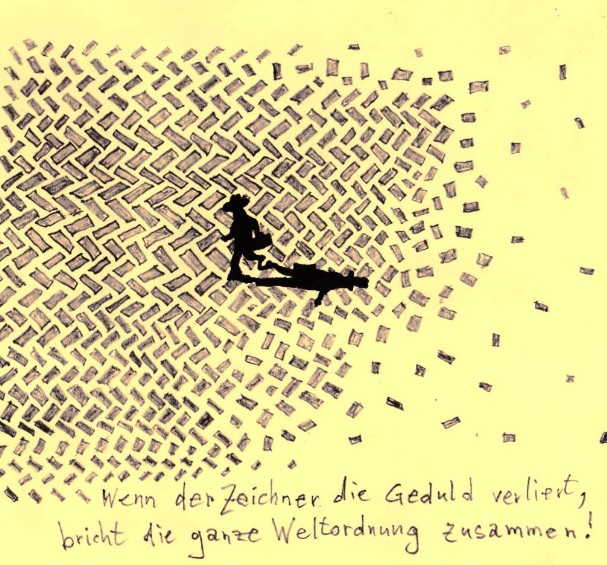 Wenn der Zeichner die Geduld verliert,
bricht die ganze Weltordnung zusammen!